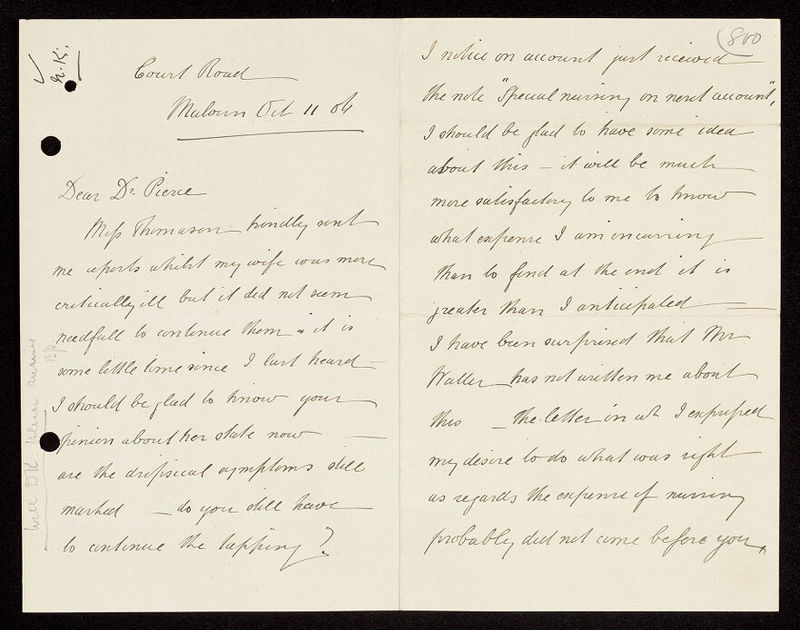 Court Road
Malvern Oct 11 06
Dear Dr. Pierce
Miss Thomason kindly sent
me reports whilst my wife was more
critically ill but it did not seem
needfull to continue them & it is
some little time since I last heard —
I should be glad to know your
opinion about her state now —
are the dropsical symptoms still
marked — do you still have
to continue the tapping?
800
I notice on account just received
the note "Special nursing on next account",
I should be glad to have some idea
about this — it will be much
more satisfactory to me to know
what expense I am incurring
than to find at the end it is
greater than I anticipated —
I have been surprised that Mr
Waller has not written me about
this — the letter in wh I expressed
my desire to do what was right
as regards the expense of nursing
probably did not come before you,
Will Dr. please answer